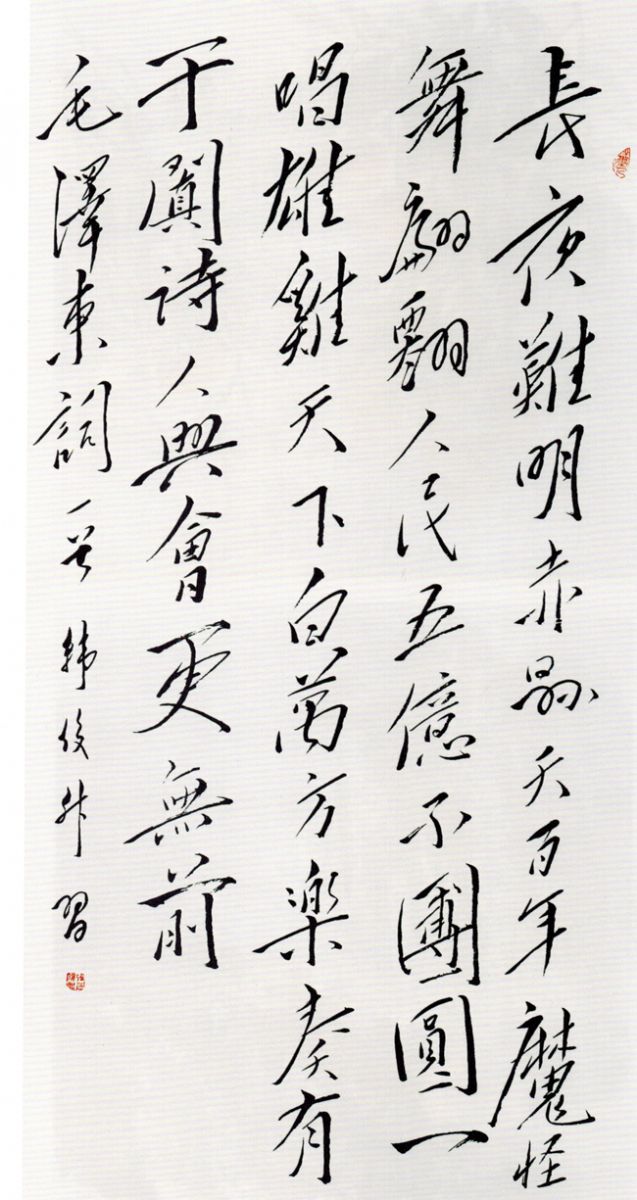 長夜難明赤縣天百年魔怪
舞翩翩人民五億不團圓一
唱雄雞天下白萬方樂奏有
于闐詩人興會更無前
毛澤東詞一首 韩俊升習